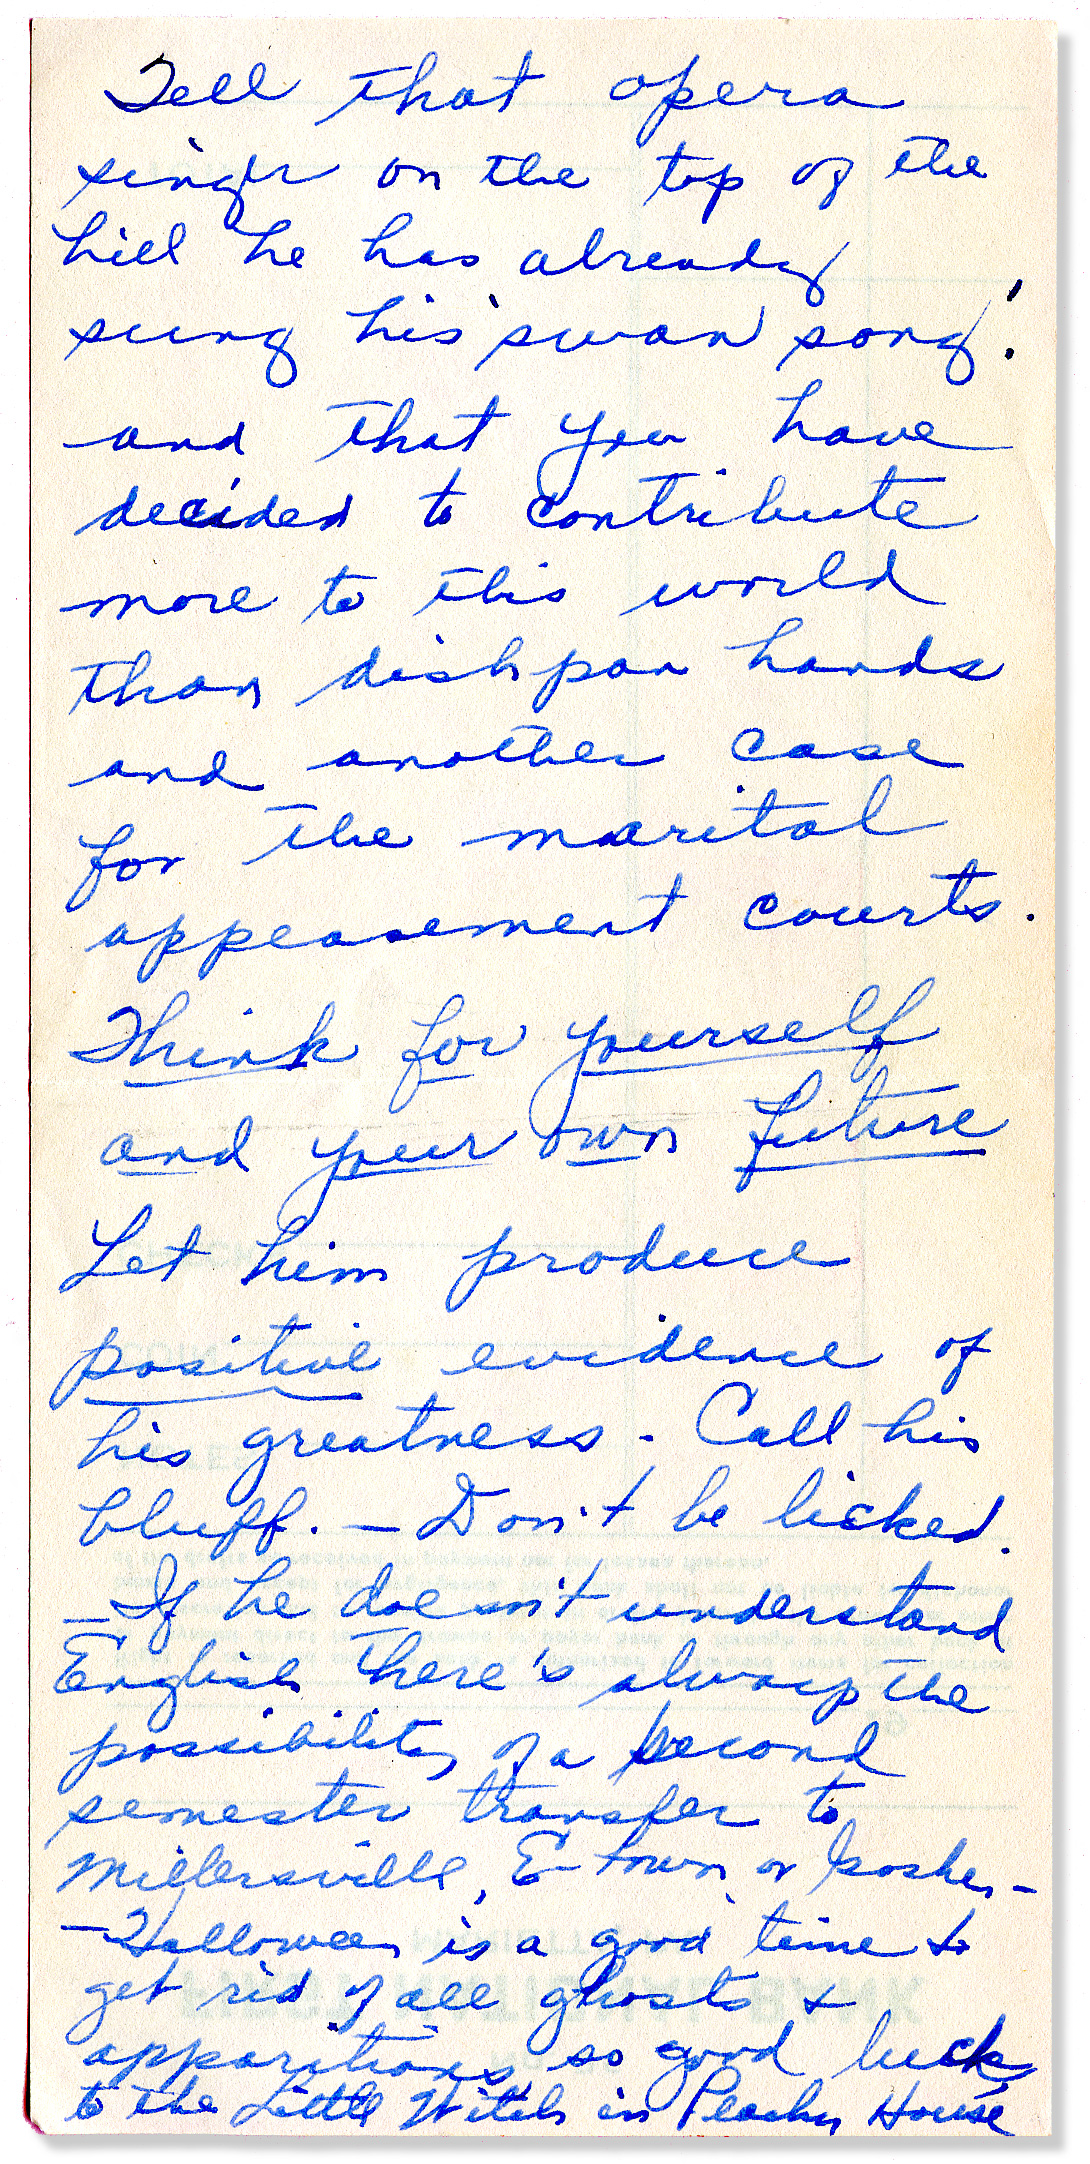 Tell that opera
singer on the top of the
hill he has already
sung his 'swan' song!
and that you have
decided to contribute
more to this world
than dishpan hands
and another case
for the marital
appeasement courts.
Think for yourself
and your own future
Let him produce
positive evidence of
his greatness. Call his
bluff. — Don't be licked.
— If he doesn't understand
English there's always the
possibility of a second
semester transfer to
Millersville, E-town or Goshen —
— Halloween is a good time to
get rid of all ghosts &
apparitions, so good luck
to the Little Witch in Peachy House